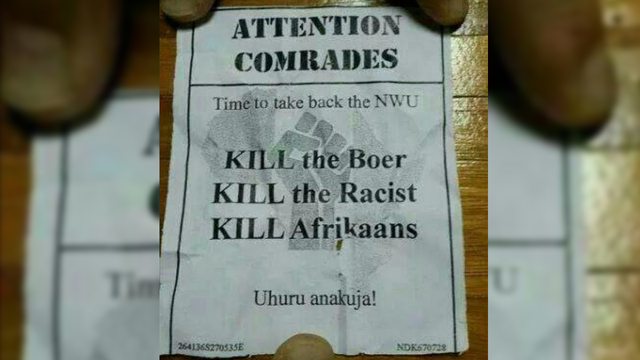 ATTENTION
COMRADES
Time to take back the NWU
KILL the Boer
KILL the Racist
KILL Afrikaans
Uhuru anakuja!
2641368270535E NDK670728